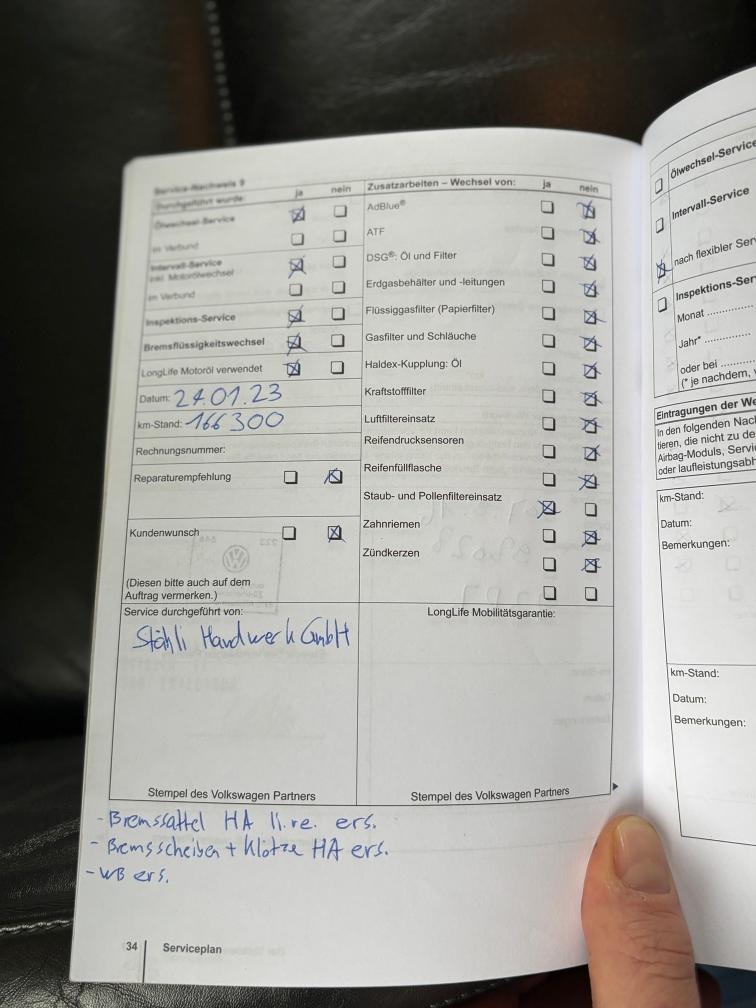 Service-Nachweis 9
Durchgeführt wurde: ja nein
Ölwechsel-Service
im Verbund
Intervall-Service
inkl. Motorölwechsel
im Verbund
Inspektions-Service
Bremsflüssigkeitswechsel
LongLife Motoröl verwendet
Datum: 24.01.23
km-Stand: 166300
Rechnungsnummer:
Reparaturempfehlung
Kundenwunsch
(Diesen bitte auch auf dem
Auftrag vermerken.)
Service durchgeführt von:
Stähli Handwerk GmbH
Stempel des Volkswagen Partners
Zusatzarbeiten – Wechsel von: ja nein
AdBlue®
ATF
DSG®: Öl und Filter
Erdgasbehälter und -leitungen
Flüssiggasfilter (Papierfilter)
Gasfilter und Schläuche
Haldex-Kupplung: Öl
Kraftstofffilter
Luftfiltereinsatz
Reifendrucksensoren
Reifenfüllflasche
Staub- und Pollenfiltereinsatz
Zahnriemen
Zündkerzen
LongLife Mobilitätsgarantie:
Stempel des Volkswagen Partners
- Bremssattel HA li.re. ers.
- Bremsscheiben + Klötze HA ers.
- WB ers.
34 Serviceplan
Ölwechsel-Service
Intervall-Service
nach flexibler Ser
Inspektions-Ser
Monat
Jahr*
oder bei
(* je nachdem,
Eintragungen der We
In den folgenden Nach
tieren, die nicht zu de
Airbag-Moduls, Servi
oder laufleistungsabh
km-Stand:
Datum:
Bemerkungen:
km-Stand:
Datum:
Bemerkungen: